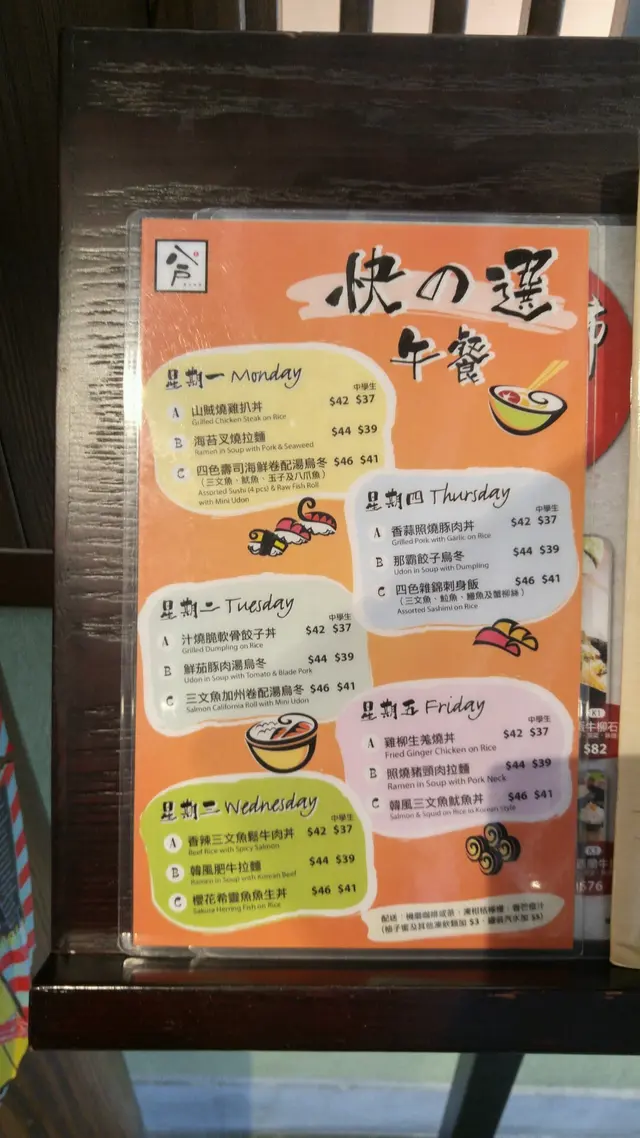 快の選
午餐
星期一 Monday
中學生
A 山賊燒雞扒丼 $42 $37
Grilled Chicken Steak on Rice
B 海苔叉燒拉麵 $44 $39
Ramen in Soup with Pork & Seaweed
C 四色壽司海鮮卷配湯烏冬 $46 $41
(三文魚、魷魚、玉子及八爪魚)
Assorted Sushi (4 pcs) & Raw Fish Roll
with Mini Udon
星期二 Tuesday
中學生
A 汁燒脆軟骨餃子丼 $42 $37
Grilled Dumpling on Rice
B 鮮茄豚肉湯烏冬 $44 $39
Udon in Soup with Tomato & Blade Pork
C 三文魚加州卷配湯烏冬 $46 $41
Salmon California Roll with Mini Udon
星期三 Wednesday
中學生
A 香辣三文魚鬆牛肉丼 $42 $37
Beef Rice with Spicy Salmon
B 韓風肥牛拉麵 $44 $39
Ramen in Soup with Korean Beef
C 櫻花希靈魚魚生丼 $46 $41
Sakura Herring Fish on Rice
星期四 Thursday
中學生
A 香蒜照燒豚肉丼 $42 $37
Grilled Pork with Garlic on Rice
B 那霸餃子烏冬 $44 $39
Udon in Soup with Dumpling
C 四色雜錦刺身飯 $46 $41
(三文魚、鮫魚、鱲魚及蟹柳絲)
Assorted Sashimi on Rice
星期五 Friday
中學生
A 雞柳生羗燒丼 $42 $37
Fried Ginger Chicken on Rice
B 照燒豬頸肉拉麵 $44 $39
Ramen in Soup with Pork Neck
C 韓風三文魚魷魚丼 $46 $41
Salmon & Squid on Rice in Korean Style
配送：機磨咖啡或茶、凍柑桔檸檬、香芒橙汁
(柚子蜜及其他凍飲類加 $3，罐裝汽水加 $5)
K1
牛柳石
$82
K1
$76